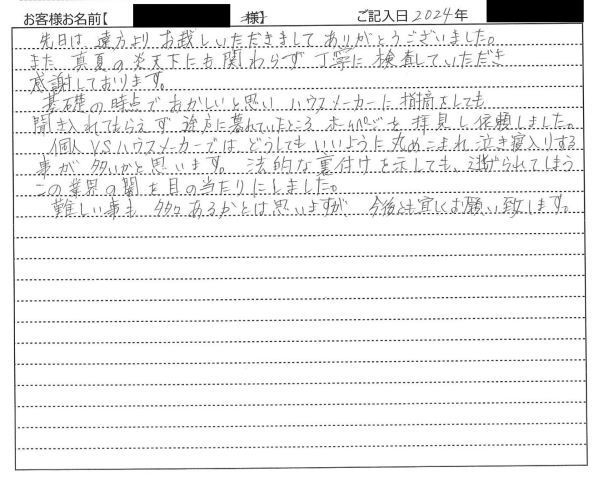 お客様お名前【 様】 ご記入日 2024年
先日は 遠方より お越しいただきまして ありがとうございました。
また 真夏の炎天下にも関わらず 丁寧に 検査していただき
感謝しております。
基礎の時点で おかしいと思い ハウスメーカーに 指摘をしても
聞き入れてもらえず 途方に暮れていたところ ホームページを 拝見し 依頼しました。
個人 VS ハウスメーカーでは どうしても いいように 丸めこまれ 泣き寝入りする
事が 多いかと思います。 法的な裏付けを示しても、逃げられてしまう
この業界の闇を目の当たりにしました。
難しい事も 多々あるかとは思いますが、今後とも宜しくお願い致します。